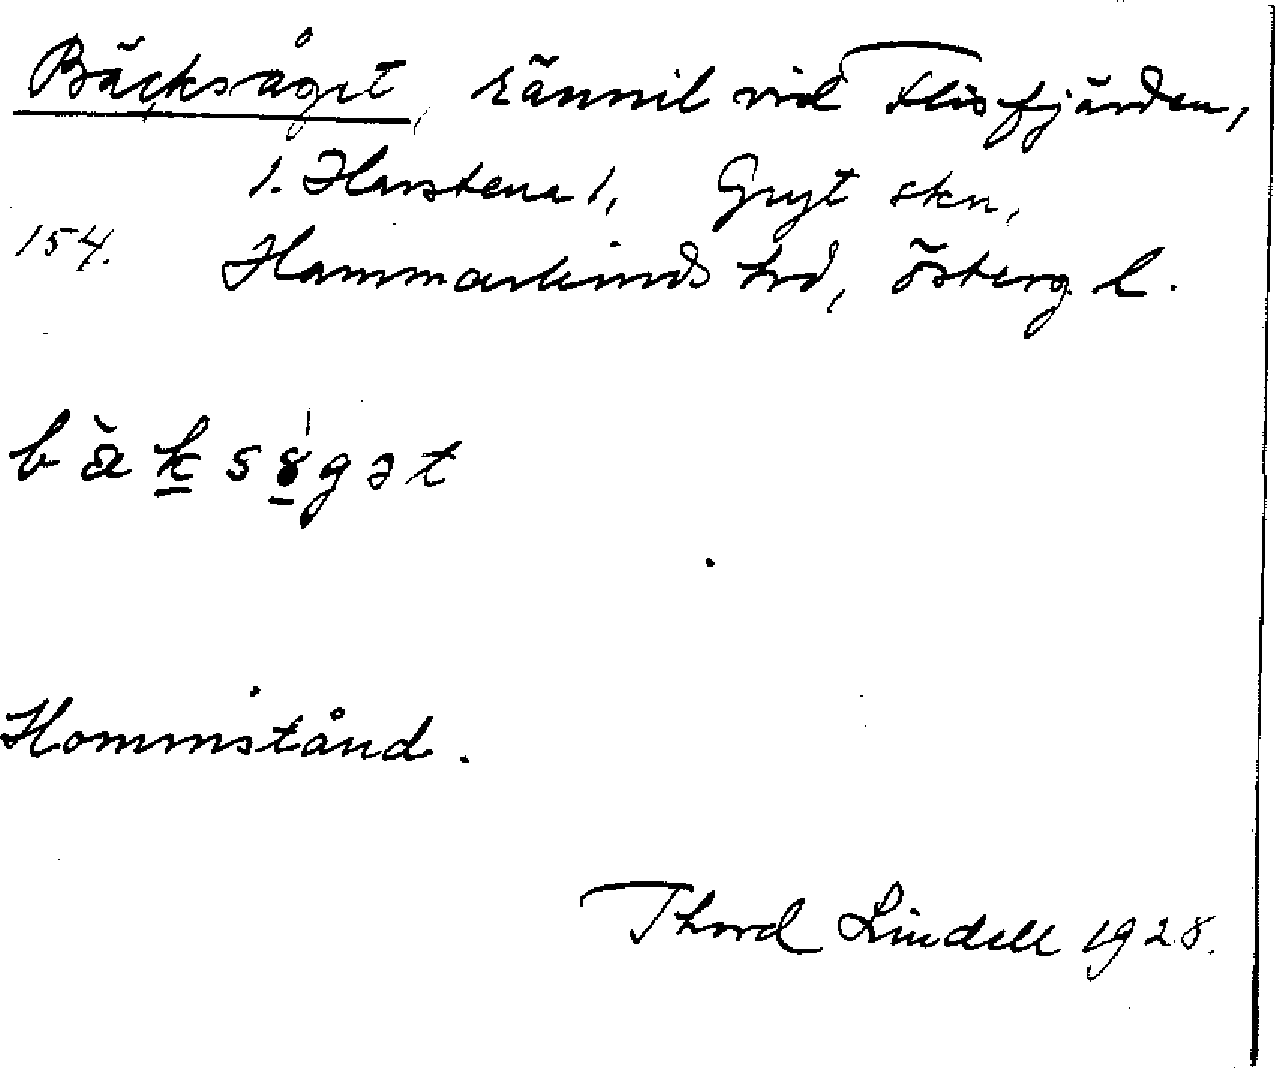 Bäcksåget, rännil vid Flisfjärden,
1. Harstena 1, Gryt skn,
154. Hammarkinds hrd, Österg. l.
bäksɣgət
Hommstånd.
Thord Lindell 1928.